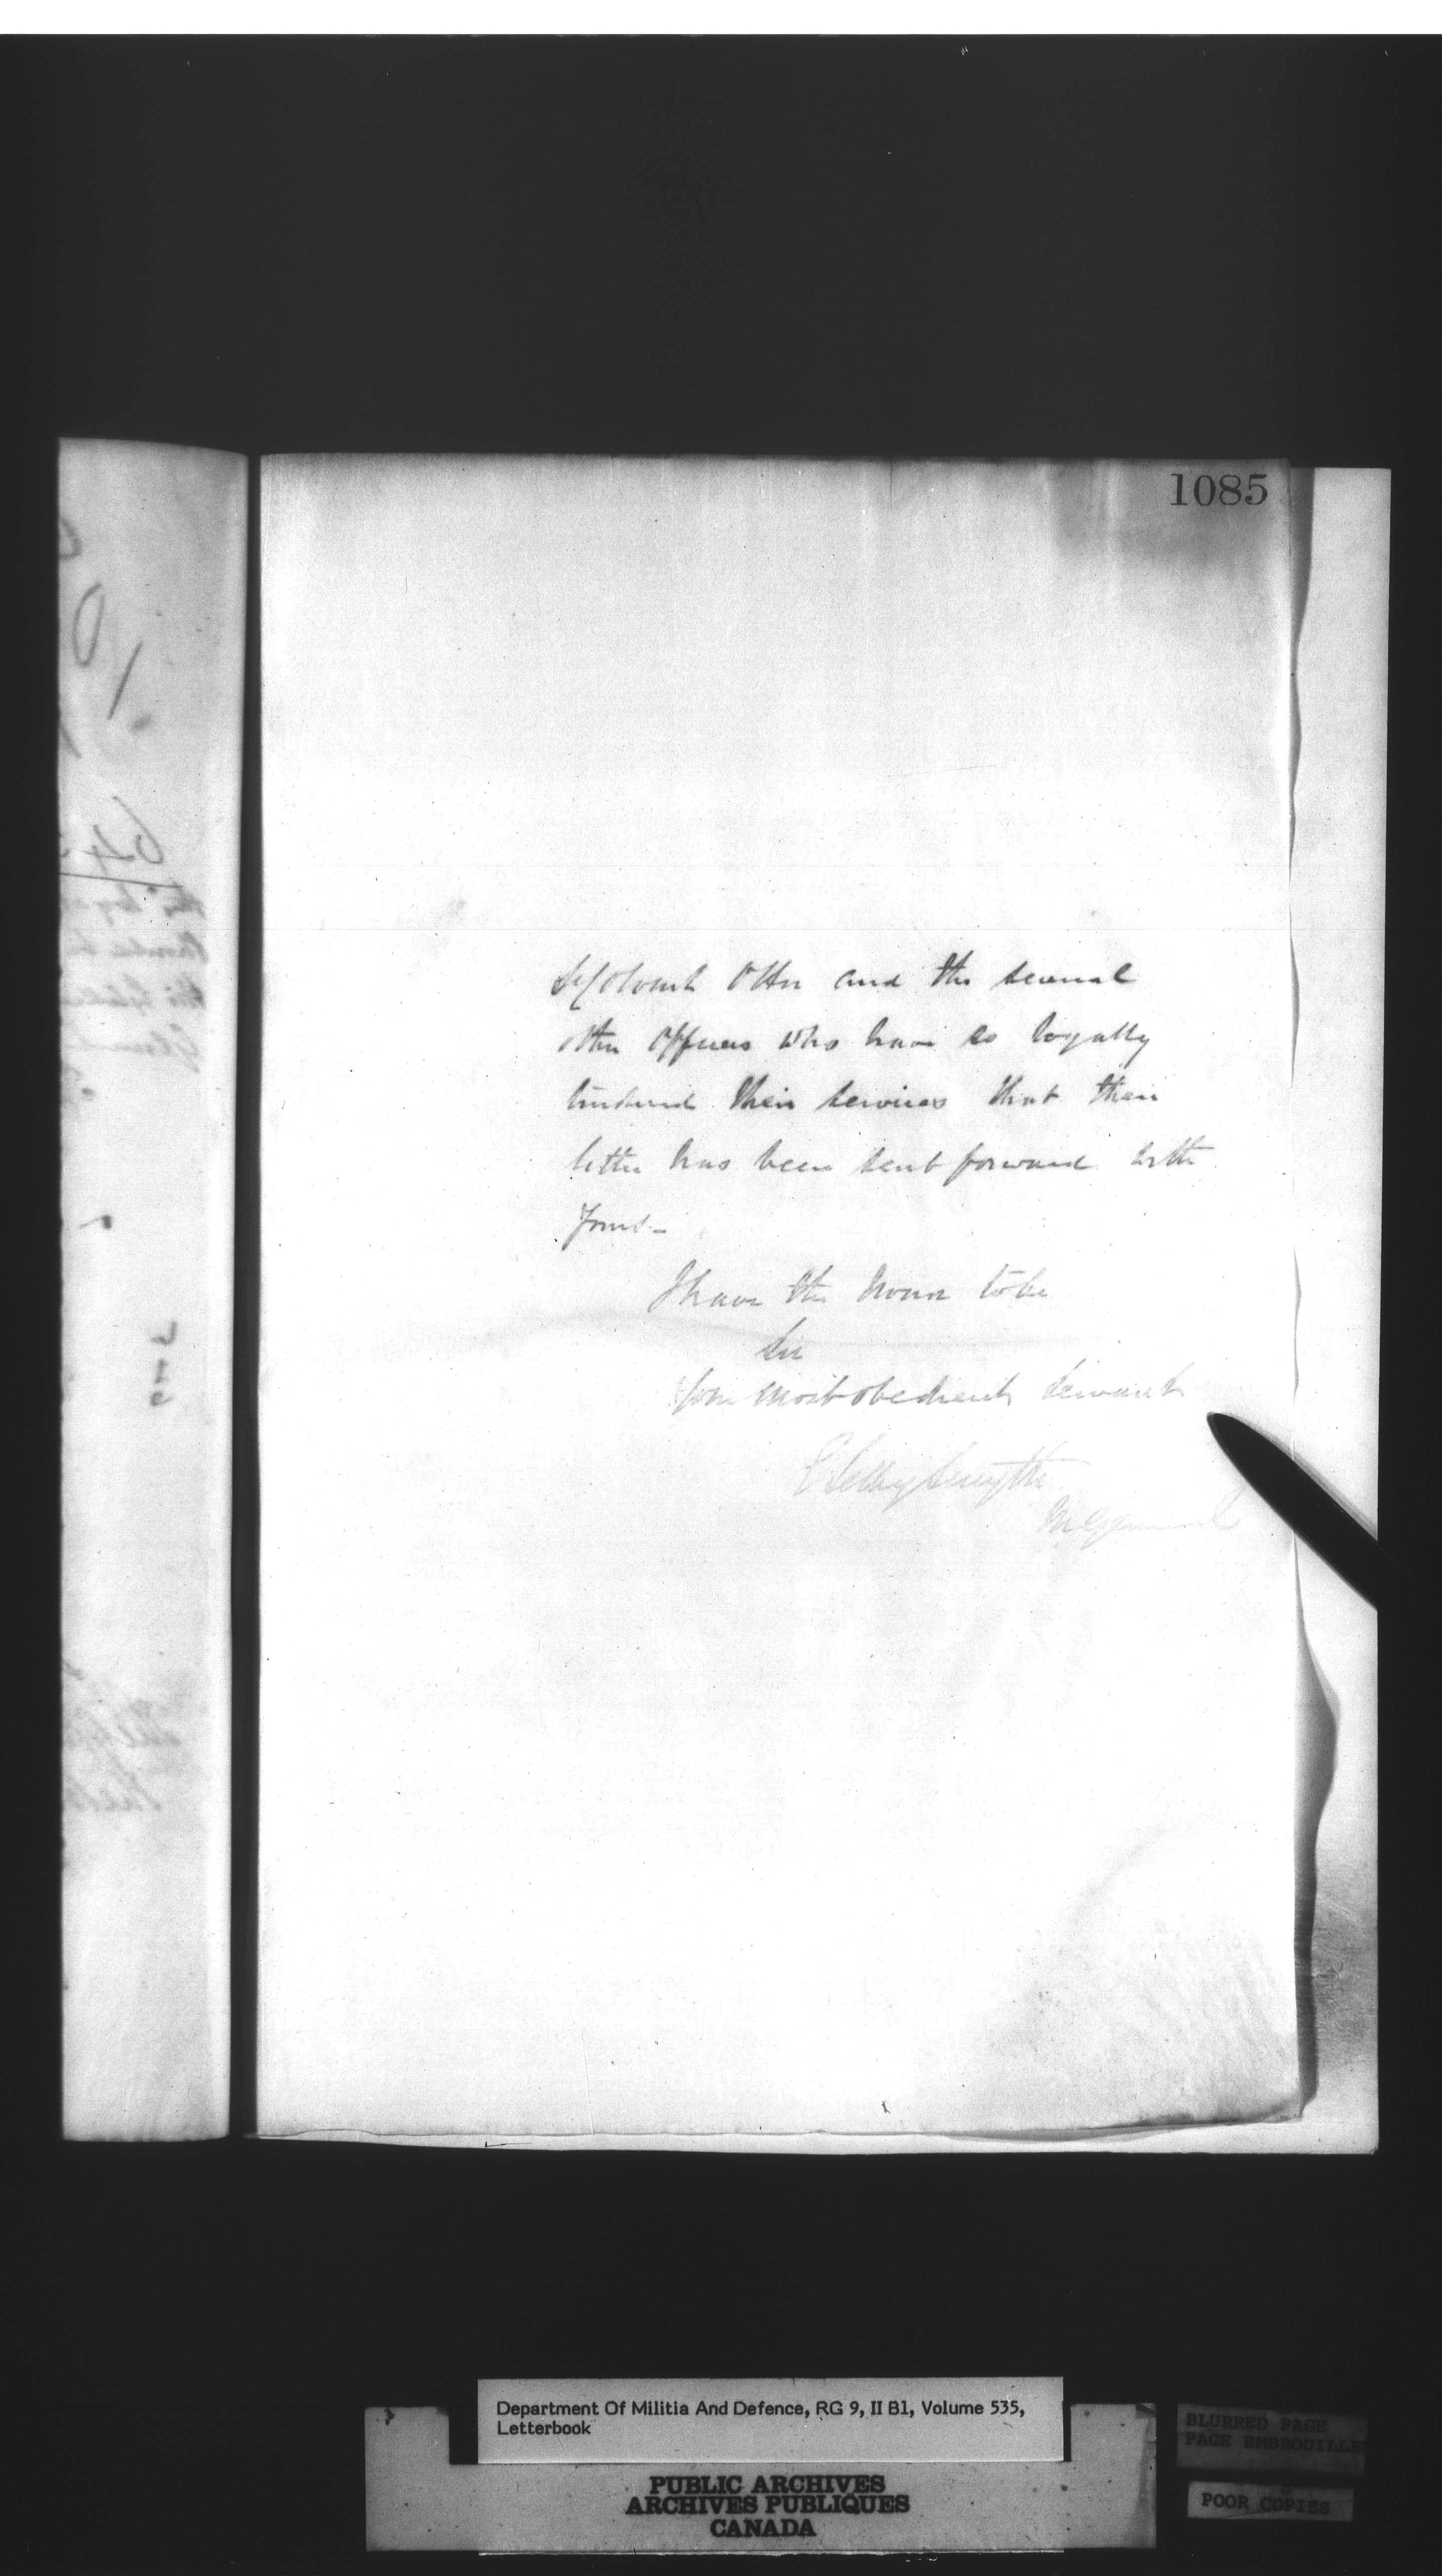 1085
Lt Colonel Otter and the several
other Officers who have so loyally
tendered their services that their
letter has been sent forward with
yours –
I have the honor to be
Sir
Your most obedient servant
E Selby Smyth
M General
Department Of Militia And Defence, RG 9, II B1, Volume 535,
Letterbook
BLURRED PAGE
PAGE EMBROUILLEE
POOR COPIES
PUBLIC ARCHIVES
ARCHIVES PUBLIQUES
CANADA